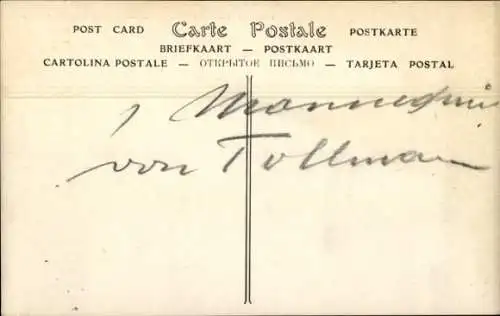 POST CARD Carte Postale POSTKARTE
BRIEFKAART — POSTKAART
CARTOLINA POSTALE — ОТКРЫТОЕ ПИСЬМО — TARJETA POSTAL
1 Mannequin
von Tollman